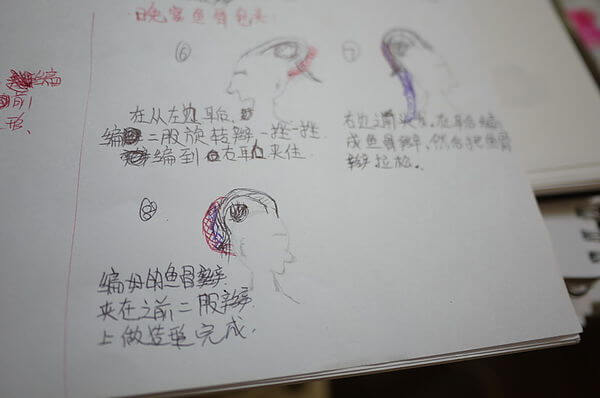 晚宴鱼骨包头
⑥
在从左边耳后
编二股旋转辫一挫一挫
编到右耳夹住.
⑦
右边之前头发,在耳后编
成鱼骨辫,然后把鱼骨
辫拉松。
⑧
编好的鱼骨辫
夹在之前二股辫
上做造型完成.
编
前
形、